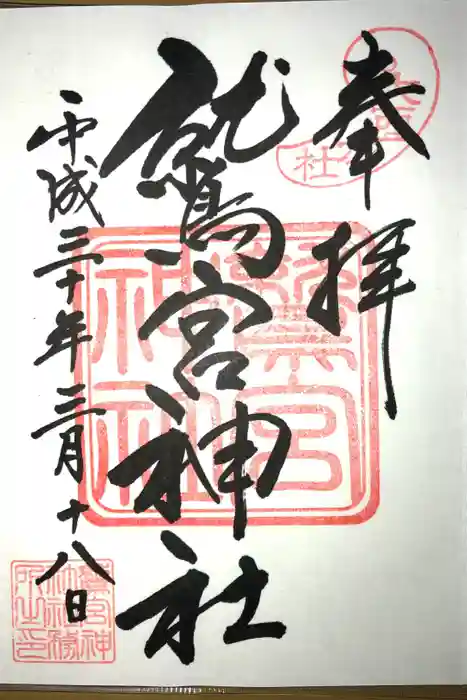 奉拝
鷲宮神社
平成三十年三月十八日
鷲宮神社